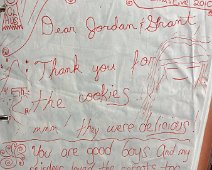 EVE 201
Dear Jordan & Grant
Thank you for
the cookies
mmm they were delicious!
You are good boys and my
loved the carrots too